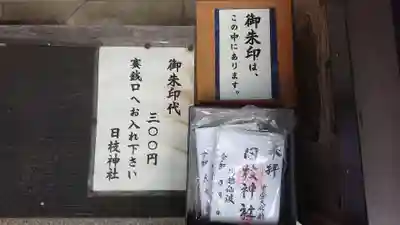 御朱印は、
この中にあります。
御朱印代
三〇〇円
賽銭口へお入れ下さい
日枝神社
奉拝
日枝神社
川越仙波
令和